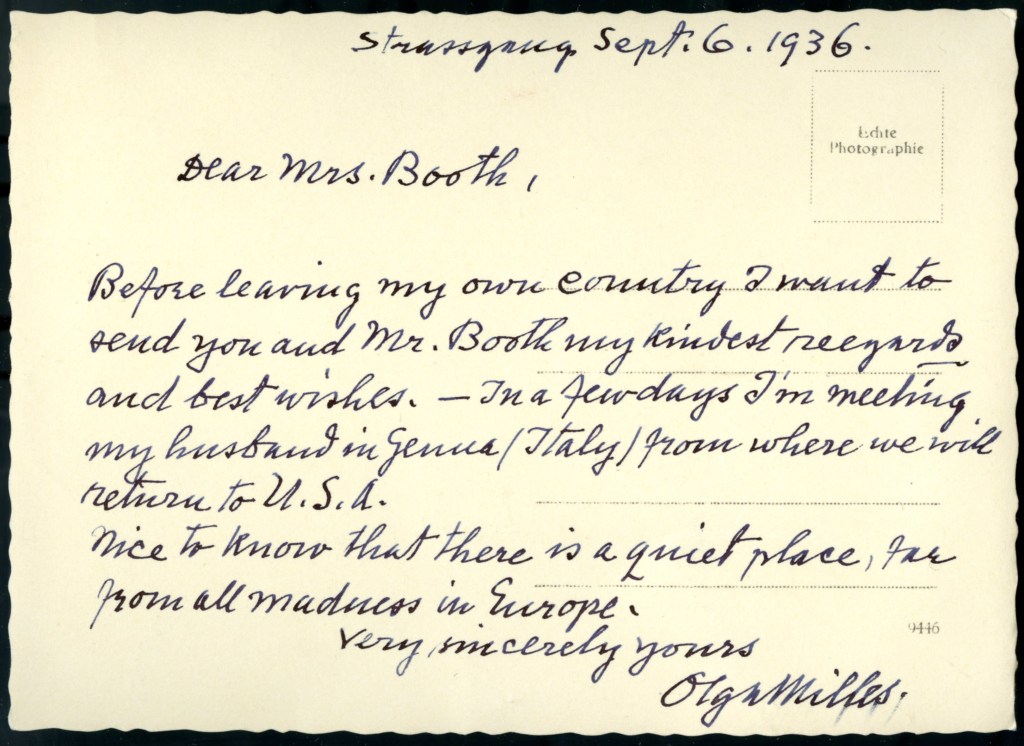 Strassgang Sept. 6. 1936.
Echte
Photographie
Dear Mrs. Booth,
Before leaving my own country I want to
send you and Mr. Booth my kindest reegards
and best wishes. — In a few days I'm meeting
my husband in Genua (Italy) from where we will
return to U.S.A.
Nice to know that there is a quiet place, far
from all madness in Europe.
9446
Very sincerely yours
Olga Milles.